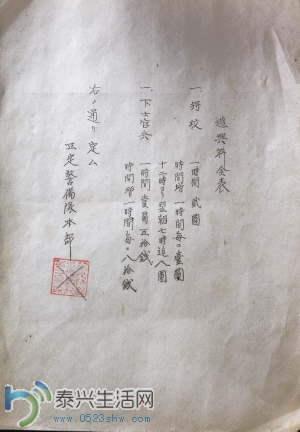 遊興料金表
一、将校 一時間 貳圓
時間増 一時間毎ニ壹圓
十二時ヨリ翌朝七時迠八圓
一、下士官兵 一時間 壹圓五拾銭
時間増 一時間毎ニ八拾銭
右ノ通リ定ム
正定警備隊本部
泰兴生活网
www.0523shw.com